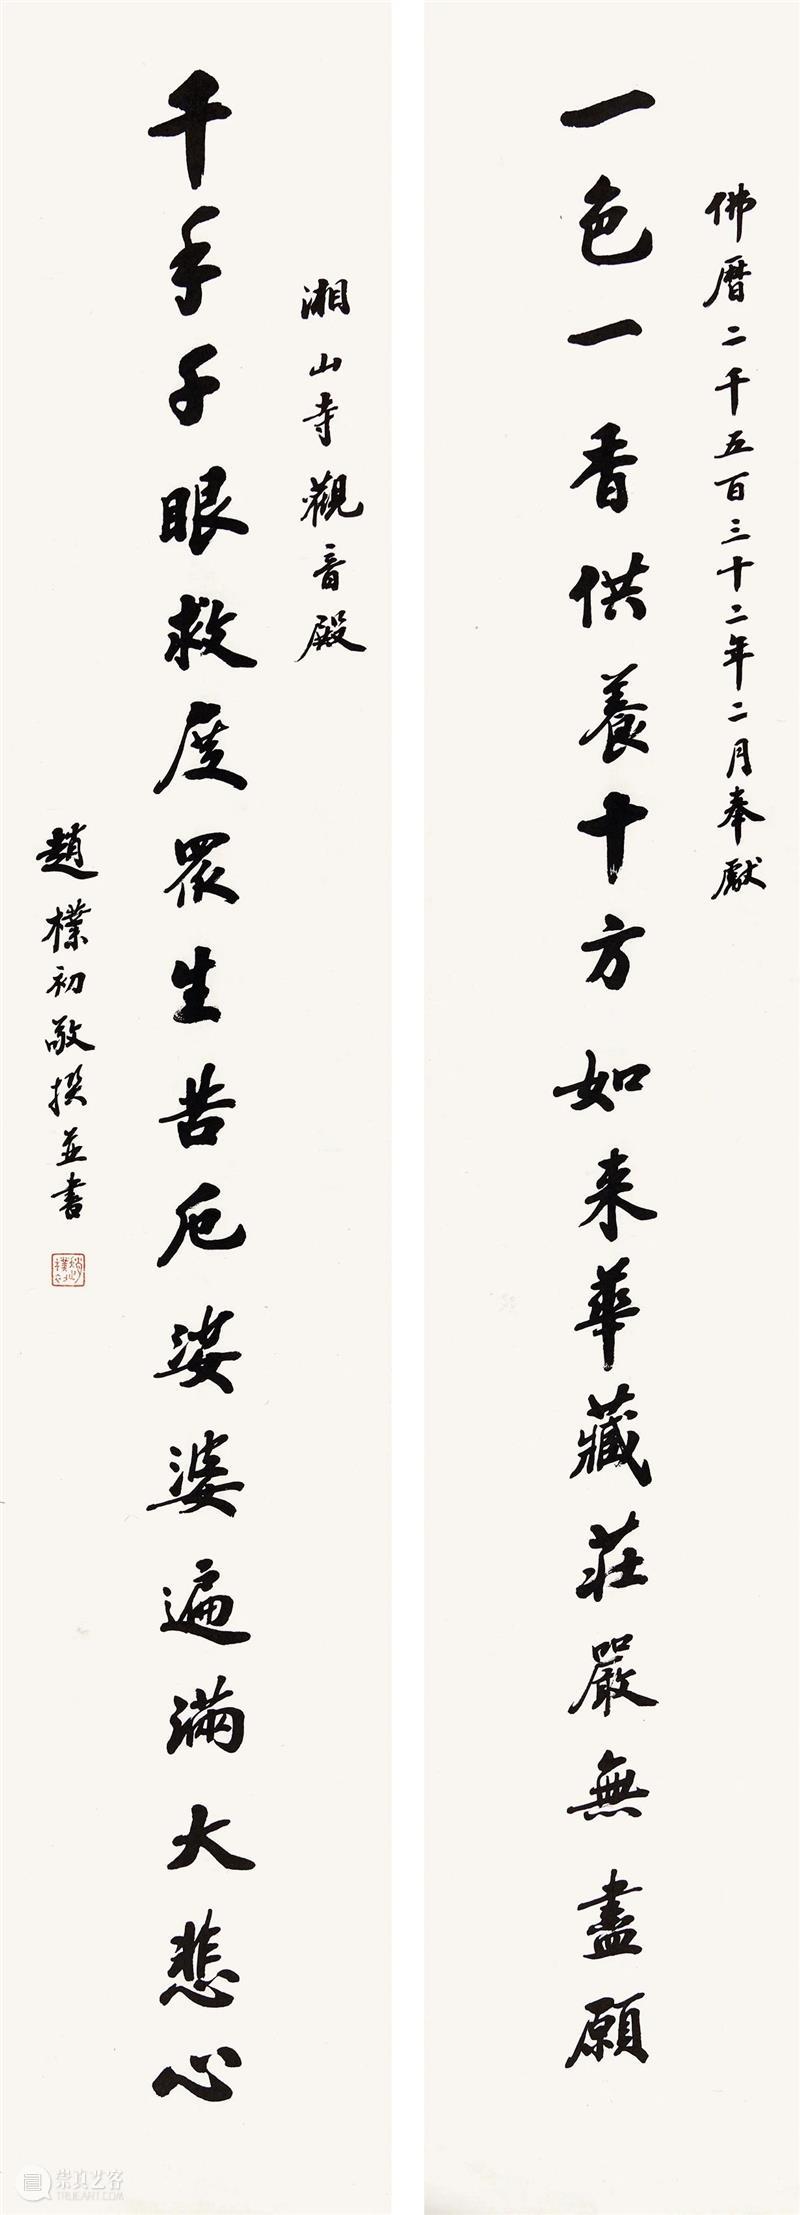 佛曆二千五百三十二年二月奉獻
一色一香供養十方如来華藏莊嚴無盡願
湘山寺觀音殿
千手千眼救度眾生苦厄娑婆遍滿大悲心
趙樸初敬撰並書
崇真艺客
TRUEART.COM